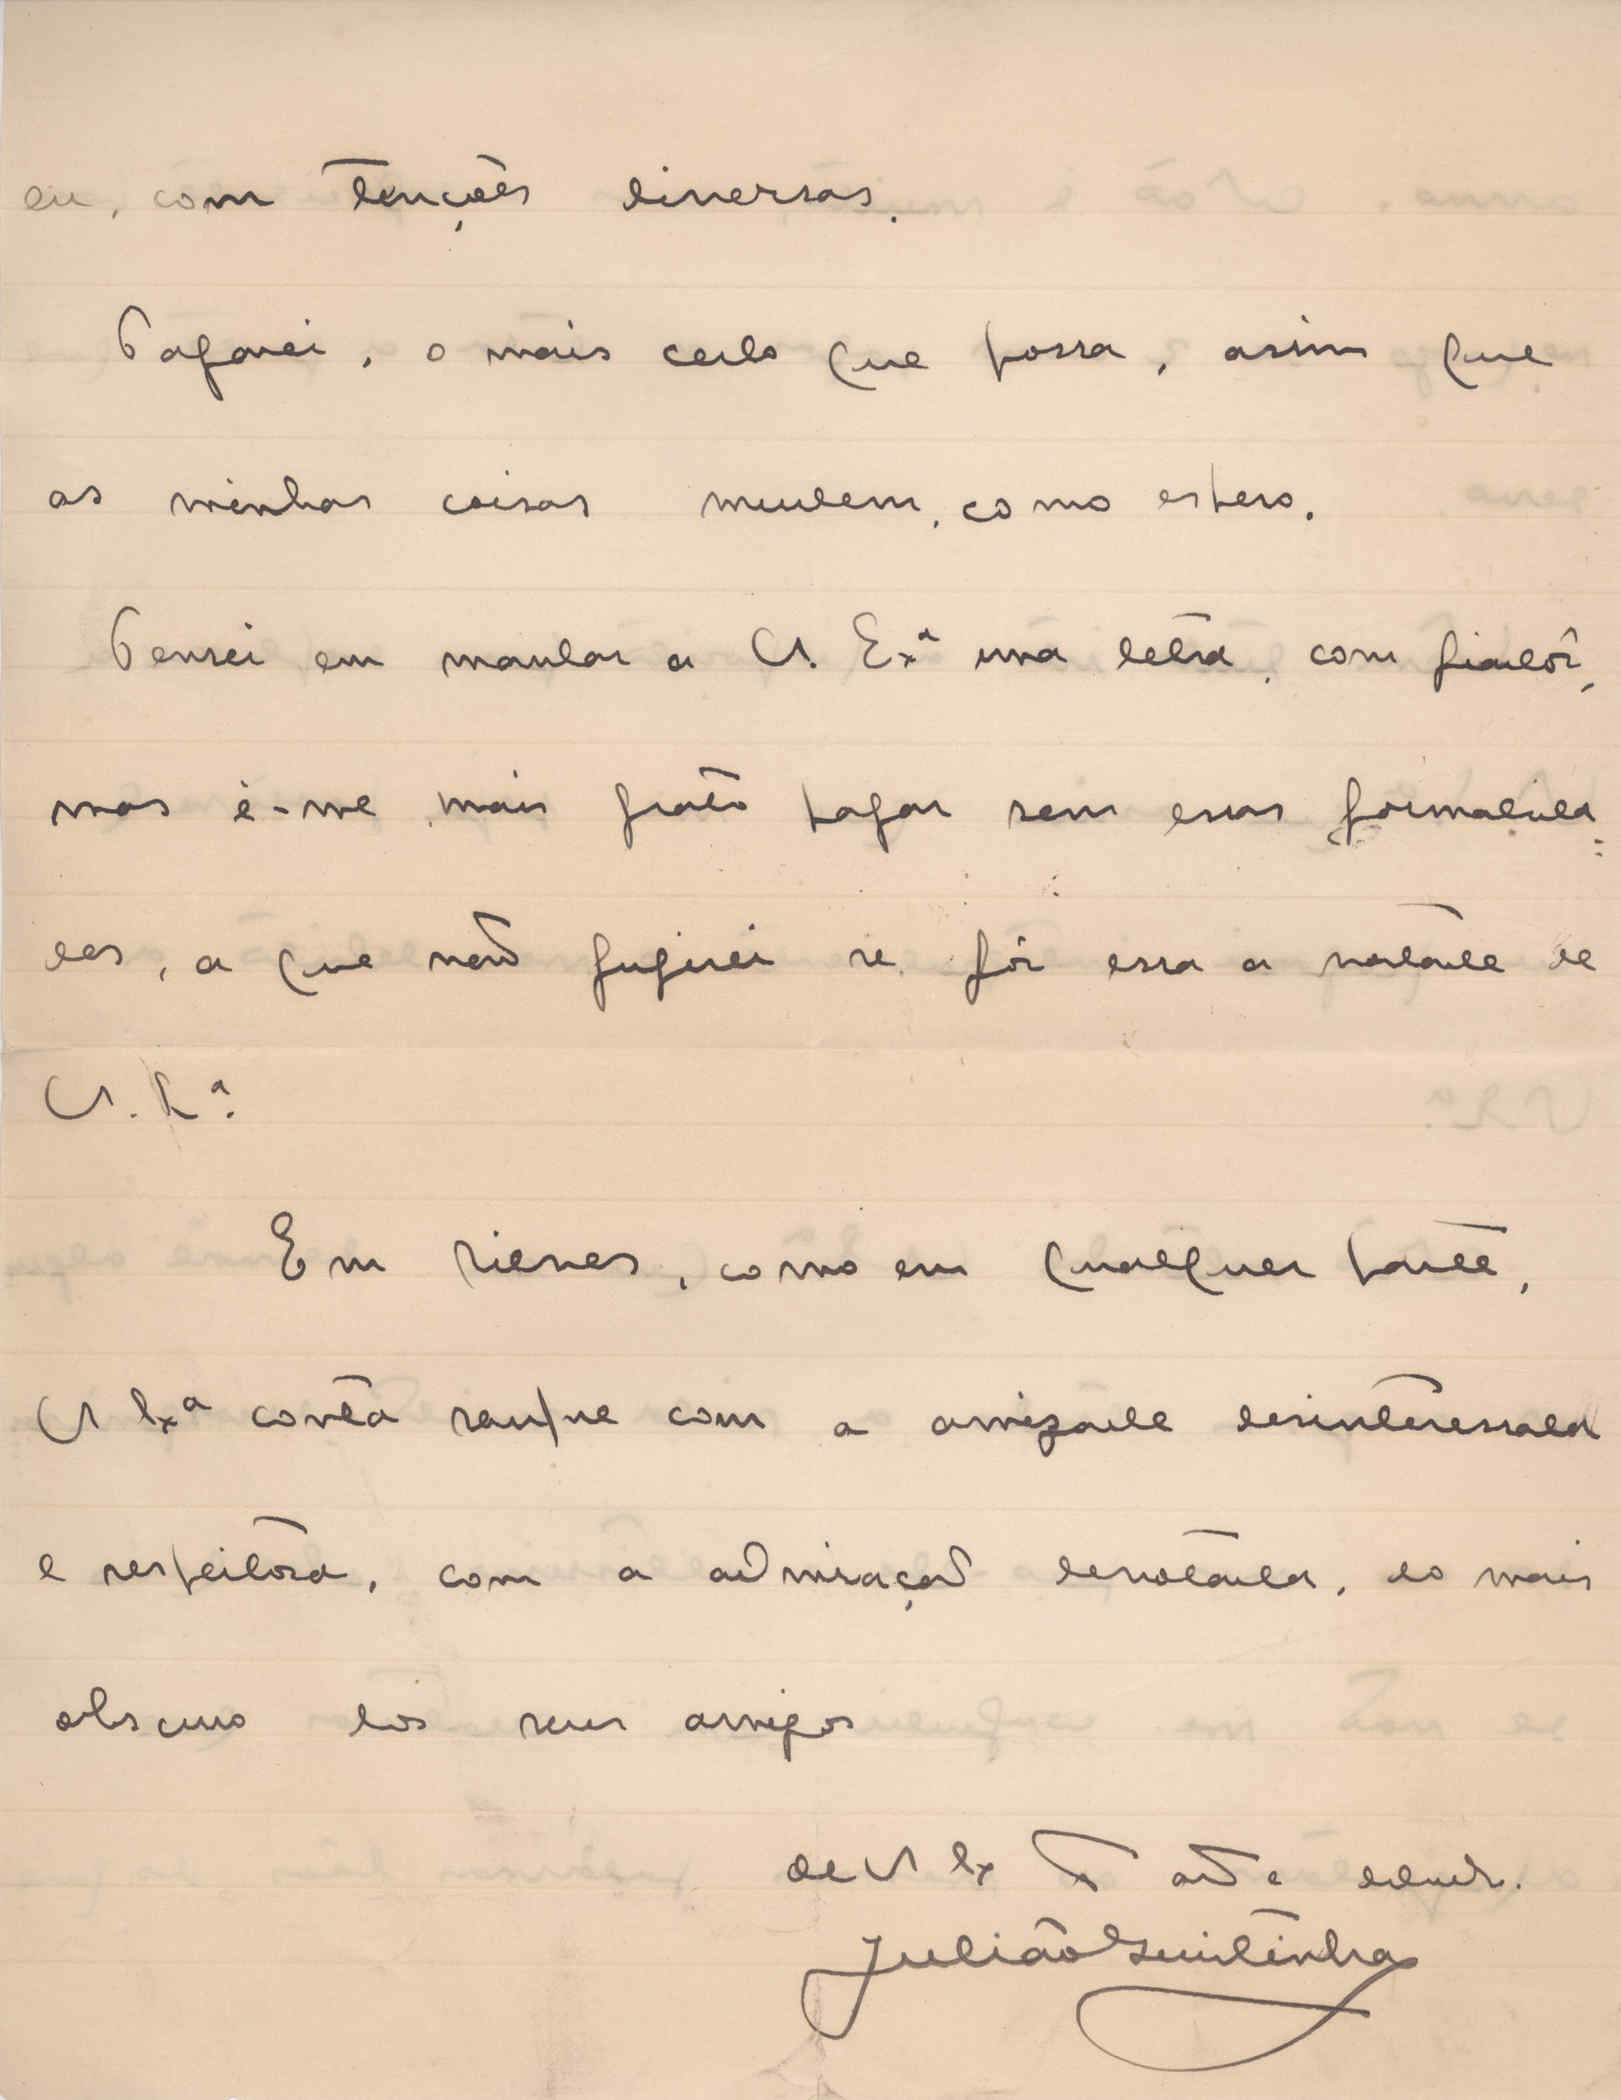 eu, com tenções diversas.
Pagarei, o mais cedo que possa, asim que
as minhas coisas mudem, como espero.
Pensei em mandar a V. Exª uma letra, com fiadôr,
mas é-me mais grato pagar sem essas formalida-
des, a que não fugirei se fôr essa a vontade de
V. Exª.
Em Silves, como em qualquer parte,
V Exª conta sempre com a amizade desinteressada
e respeitosa, com a admiração devotada, do mais
obscuro dos seus amigos
de V Ex
Julião Quintinha